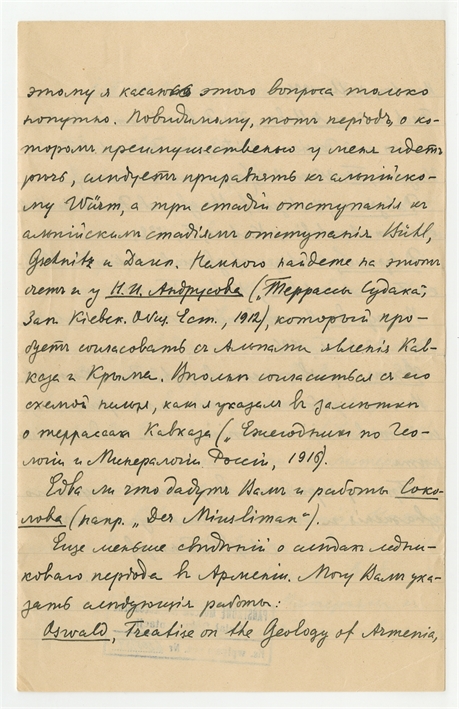 этому я касаюсь этого вопроса только
попутно. Повидимому, тотъ періодъ, о ко-
торомъ преимущественно у меня идетъ
рѣчь, слѣдуетъ приравнять къ альпійско-
му Würm, а три стадіи отступанія къ
альпійскимъ стадіямъ отступанія Bühl,
Gschnitz и Daun. Немного найдете на этотъ
счетъ и у Н. И. Андрусова („Террассы Судака“,
Зап. Кіевск. Общ. Ест., 1912), который про-
буетъ согласовать съ Альпами явленія Кав-
каза и Крыма. Вполнѣ согласиться съ его
схемой нельзя, какъ я указалъ въ замѣткѣ
о террассахъ Кавказа („Ежегодникъ по Гео-
логіи и Минералогіи Россіи, 1915).
Едва ли что дадутъ Вамъ и работы Соко-
лова (напр. „Der Miusliman“).
Еще меньше свѣдѣній о слѣдахъ ледни-
коваго періода въ Арменіи. Могу Вамъ ука-
зать слѣдующія работы:
Oswald, Treatise on the Geology of Armenia,